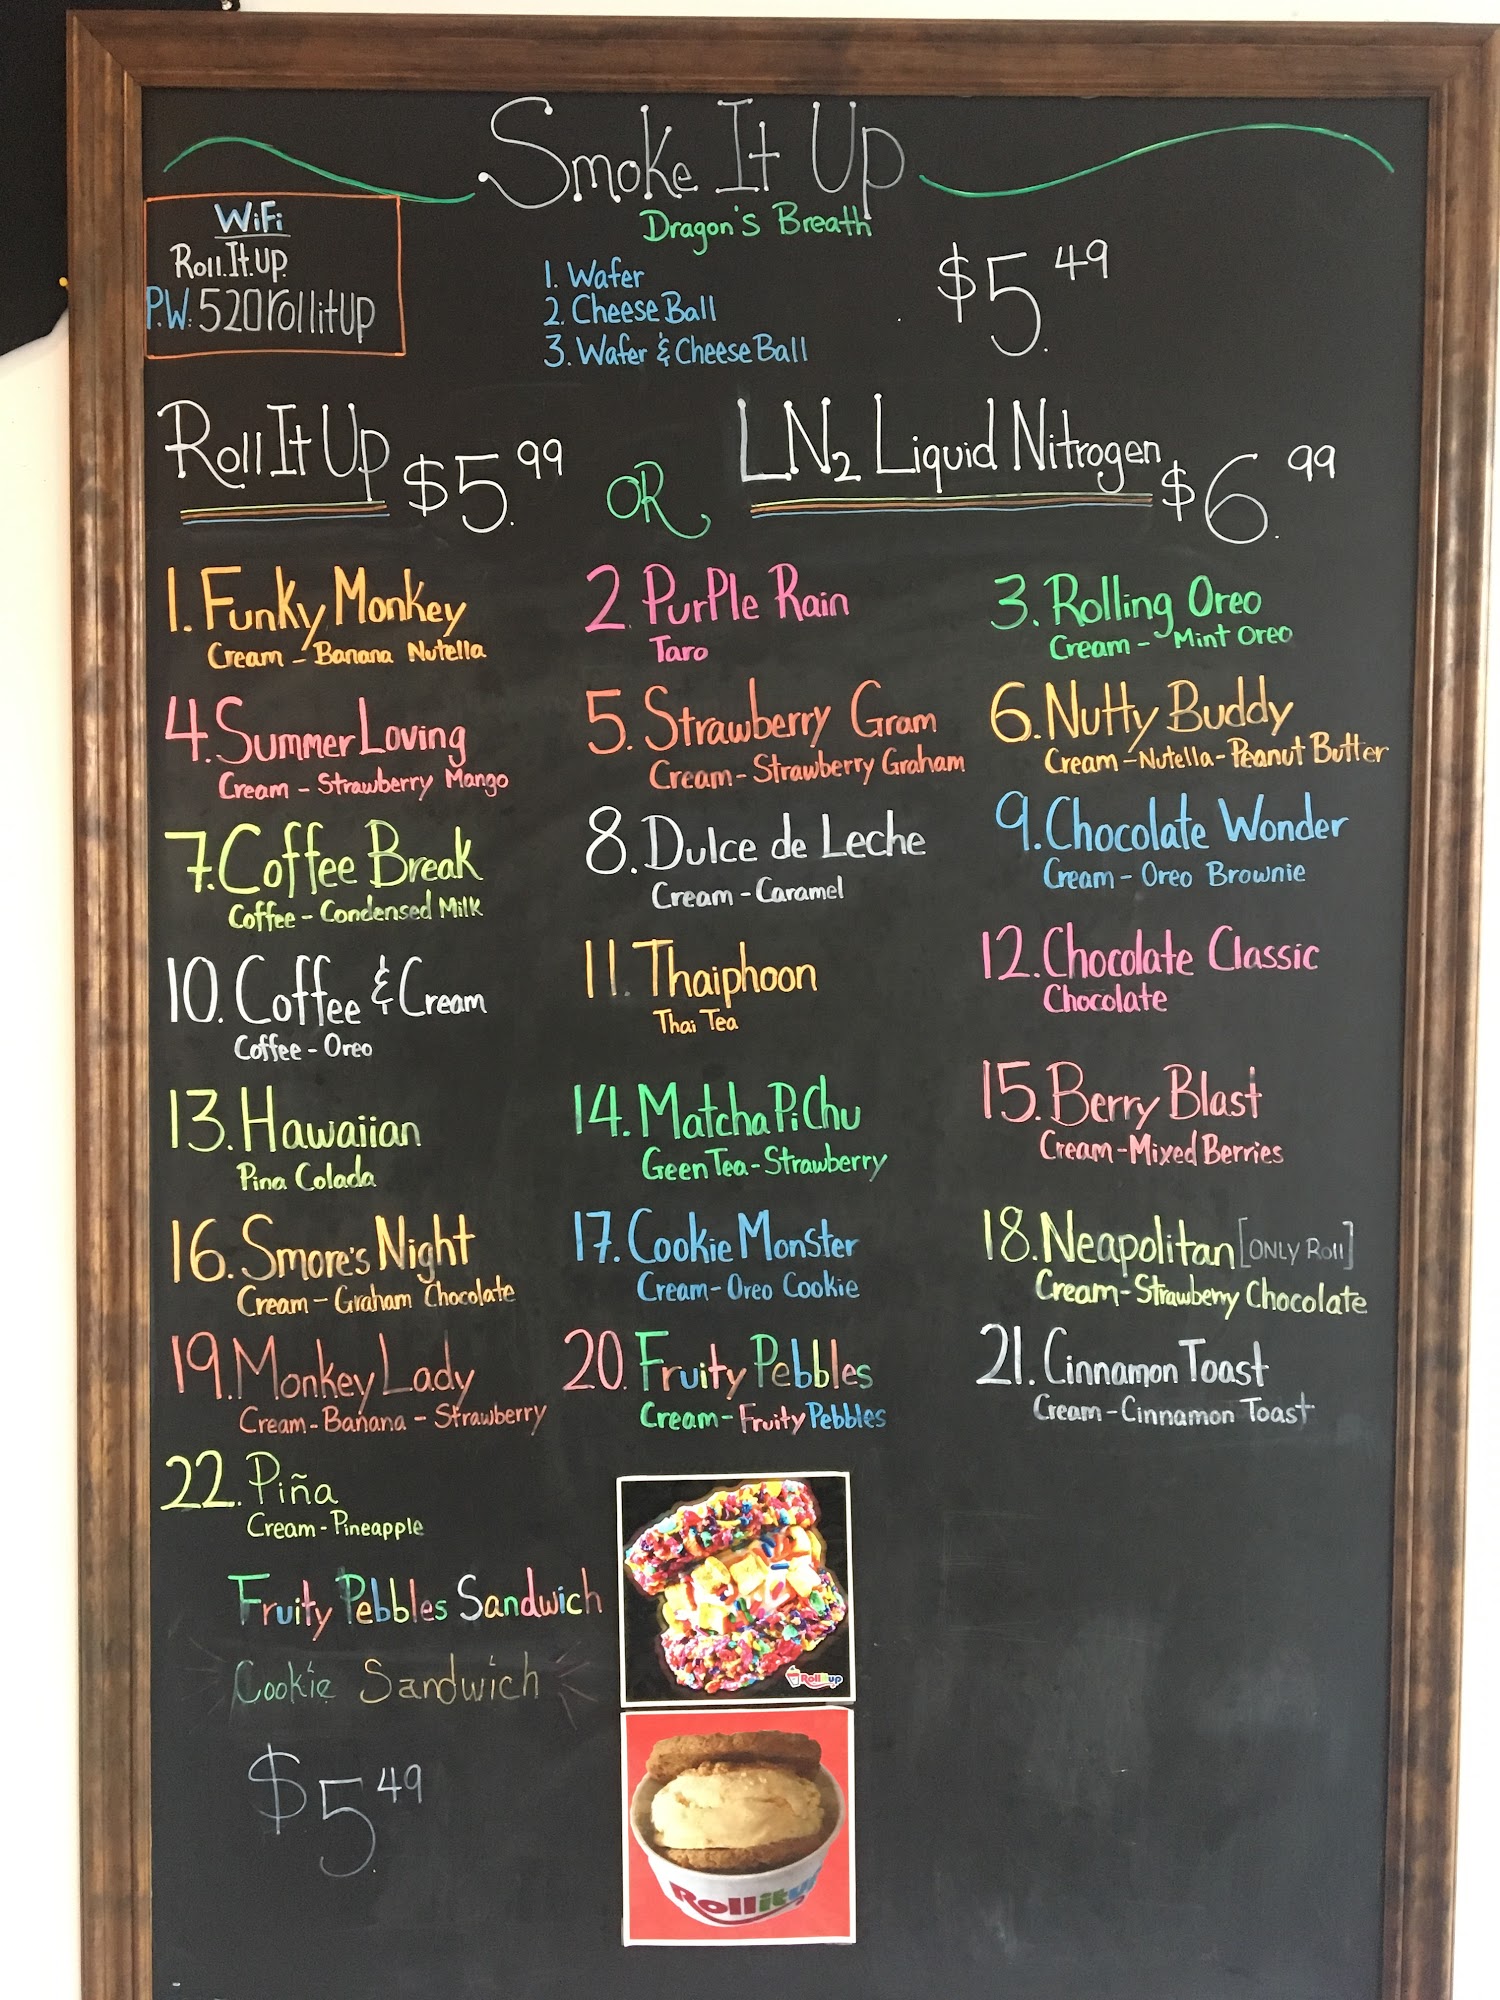 Smoke It Up
Dragon's Breath
WiFi
Roll.It.Up.
P.W: 520rollitup
1. Wafer
2. Cheese Ball
3. Wafer & Cheese Ball
$5.49
Roll It Up $5.99 OR LN2 Liquid Nitrogen $6.99
1. Funky Monkey
Cream - Banana Nutella
2. Purple Rain
Taro
3. Rolling Oreo
Cream - Mint Oreo
4. Summer Loving
Cream - Strawberry Mango
5. Strawberry Gram
Cream - Strawberry Graham
6. Nutty Buddy
Cream - Nutella - Peanut Butter
7. Coffee Break
Coffee - Condensed Milk
8. Dulce de Leche
Cream - Caramel
9. Chocolate Wonder
Cream - Oreo Brownie
10. Coffee & Cream
Coffee - Oreo
11. Thaiphoon
Thai Tea
12. Chocolate Classic
Chocolate
13. Hawaiian
Pina Colada
14. Matcha Pi Chu
Geen Tea - Strawberry
15. Berry Blast
Cream - Mixed Berries
16. Smore's Night
Cream - Graham Chocolate
17. Cookie Monster
Cream - Oreo Cookie
18. Neapolitan [ONLY Roll]
Cream - Strawberry Chocolate
19. Monkey Lady
Cream - Banana - Strawberry
20. Fruity Pebbles
Cream - Fruity Pebbles
21. Cinnamon Toast
Cream - Cinnamon Toast
22. Piña
Cream - Pineapple
Fruity Pebbles Sandwich
Cookie Sandwich
$5.49
Rollitup
Rollitup